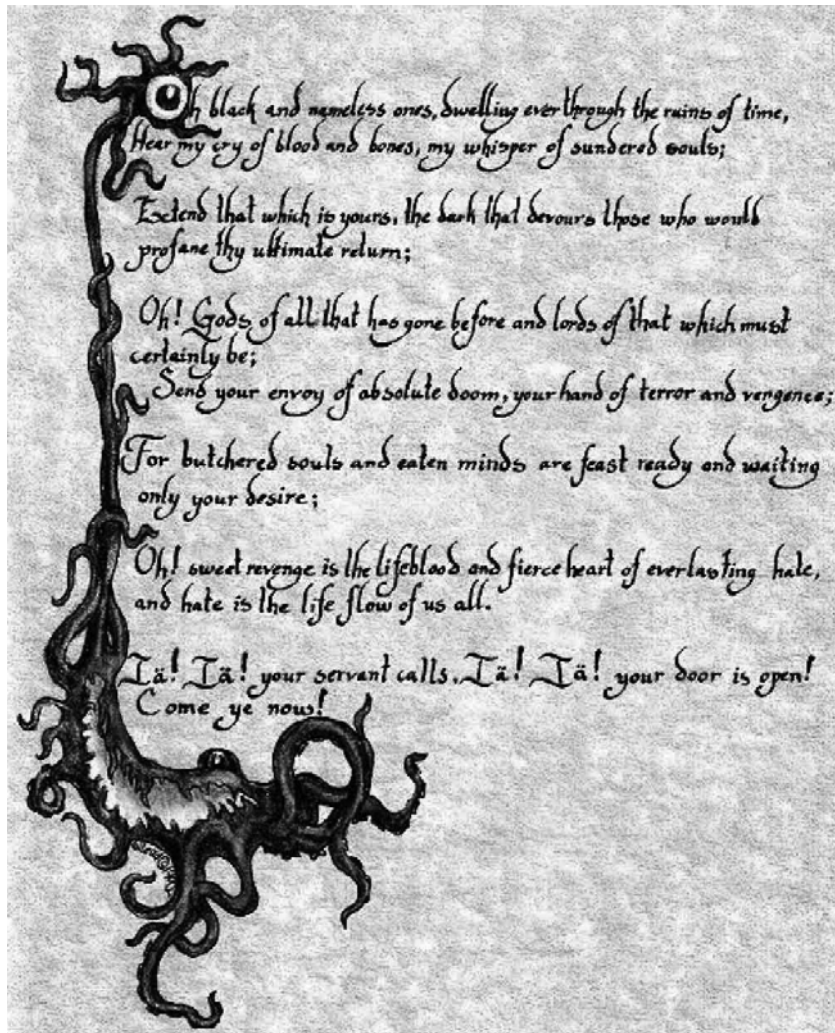 Oh black and nameless ones, dwelling ever through the ruins of time,
Hear my cry of blood and bones, my whisper of sundered souls;
Extend that which is yours, the dark that devours those who would
profane thy ultimate return;
Oh! Gods of all that has gone before and lords of that which must
certainly be;
Send your envoy of absolute doom, your hand of terror and vengence;
For butchered souls and eaten minds are feast ready and waiting
only your desire;
Oh! sweet revenge is the lifeblood and fierce heart of everlasting hate,
and hate is the life flow of us all.
Iä! Iä! your servant calls. Iä! Iä! your door is open!
Come ye now!